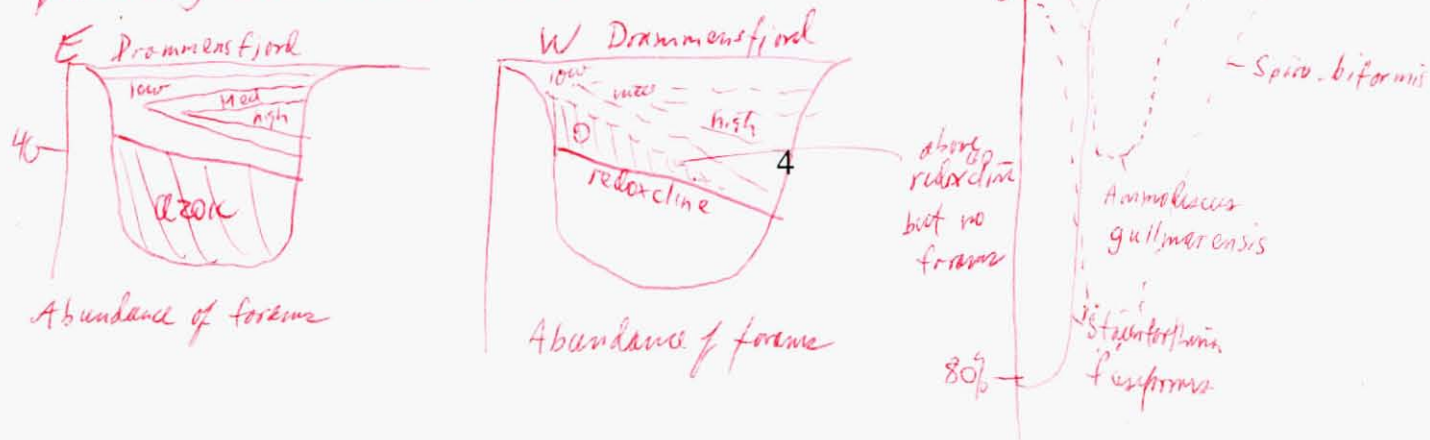 E Drammensfjord
low
Med
high
40
azoic
Abundance of forams
W Drammensfjord
low
high
0
4
redoxcline
Abundance of forams
above
redoxcline
but no
forams
Spiro. biformis
Ammodiscus
gullmarensis
fusiformis
80%